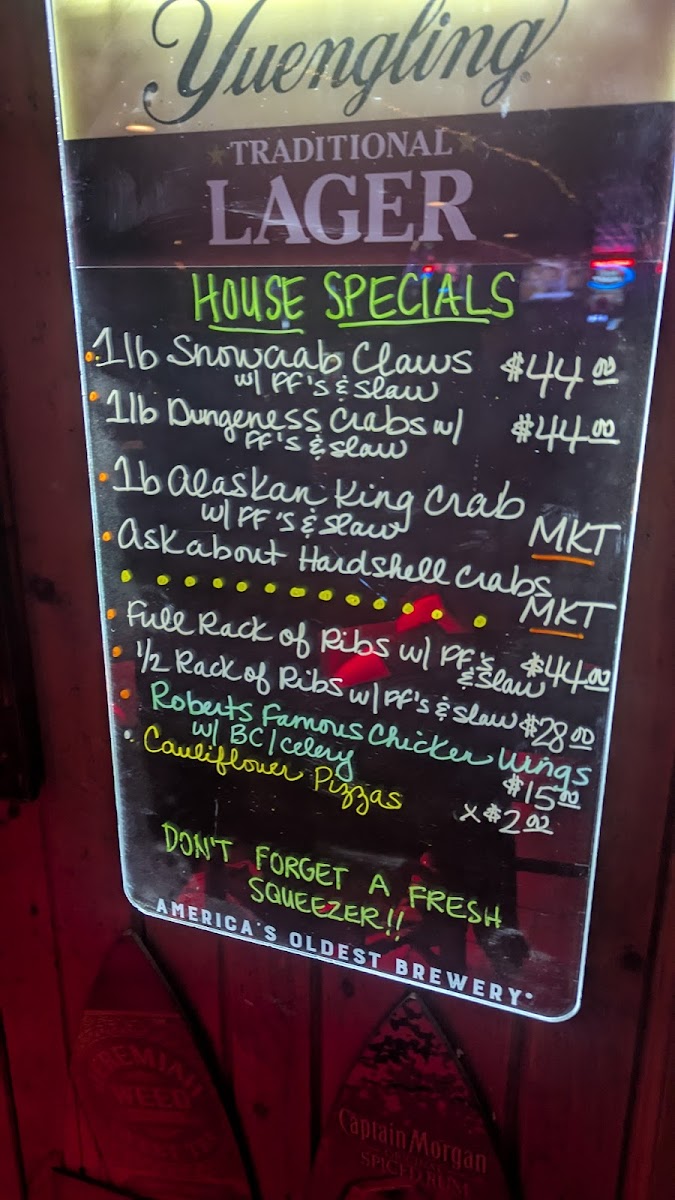 Yuengling®
TRADITIONAL
LAGER
HOUSE SPECIALS
1lb Snowcrab Claws $44.00
w/ FF's & Slaw
1lb Dungeness Crabs w/ $44.00
FF's & Slaw
1b Alaskan King Crab
w/ FF's & Slaw MKT
Ask about Hardshell Crabs
MKT
Full Rack of Ribs w/ FF's
& Slaw $44.00
1/2 Rack of Ribs w/ FF's & Slaw $28.00
Roberts Famous Chicken Wings
w/ BC/Celery $15.00
Cauliflower Pizzas x $2.00
DON'T FORGET A FRESH
SQUEEZER!!
AMERICA'S OLDEST BREWERY®
WEED
Captain Morgan
SPICED RUM